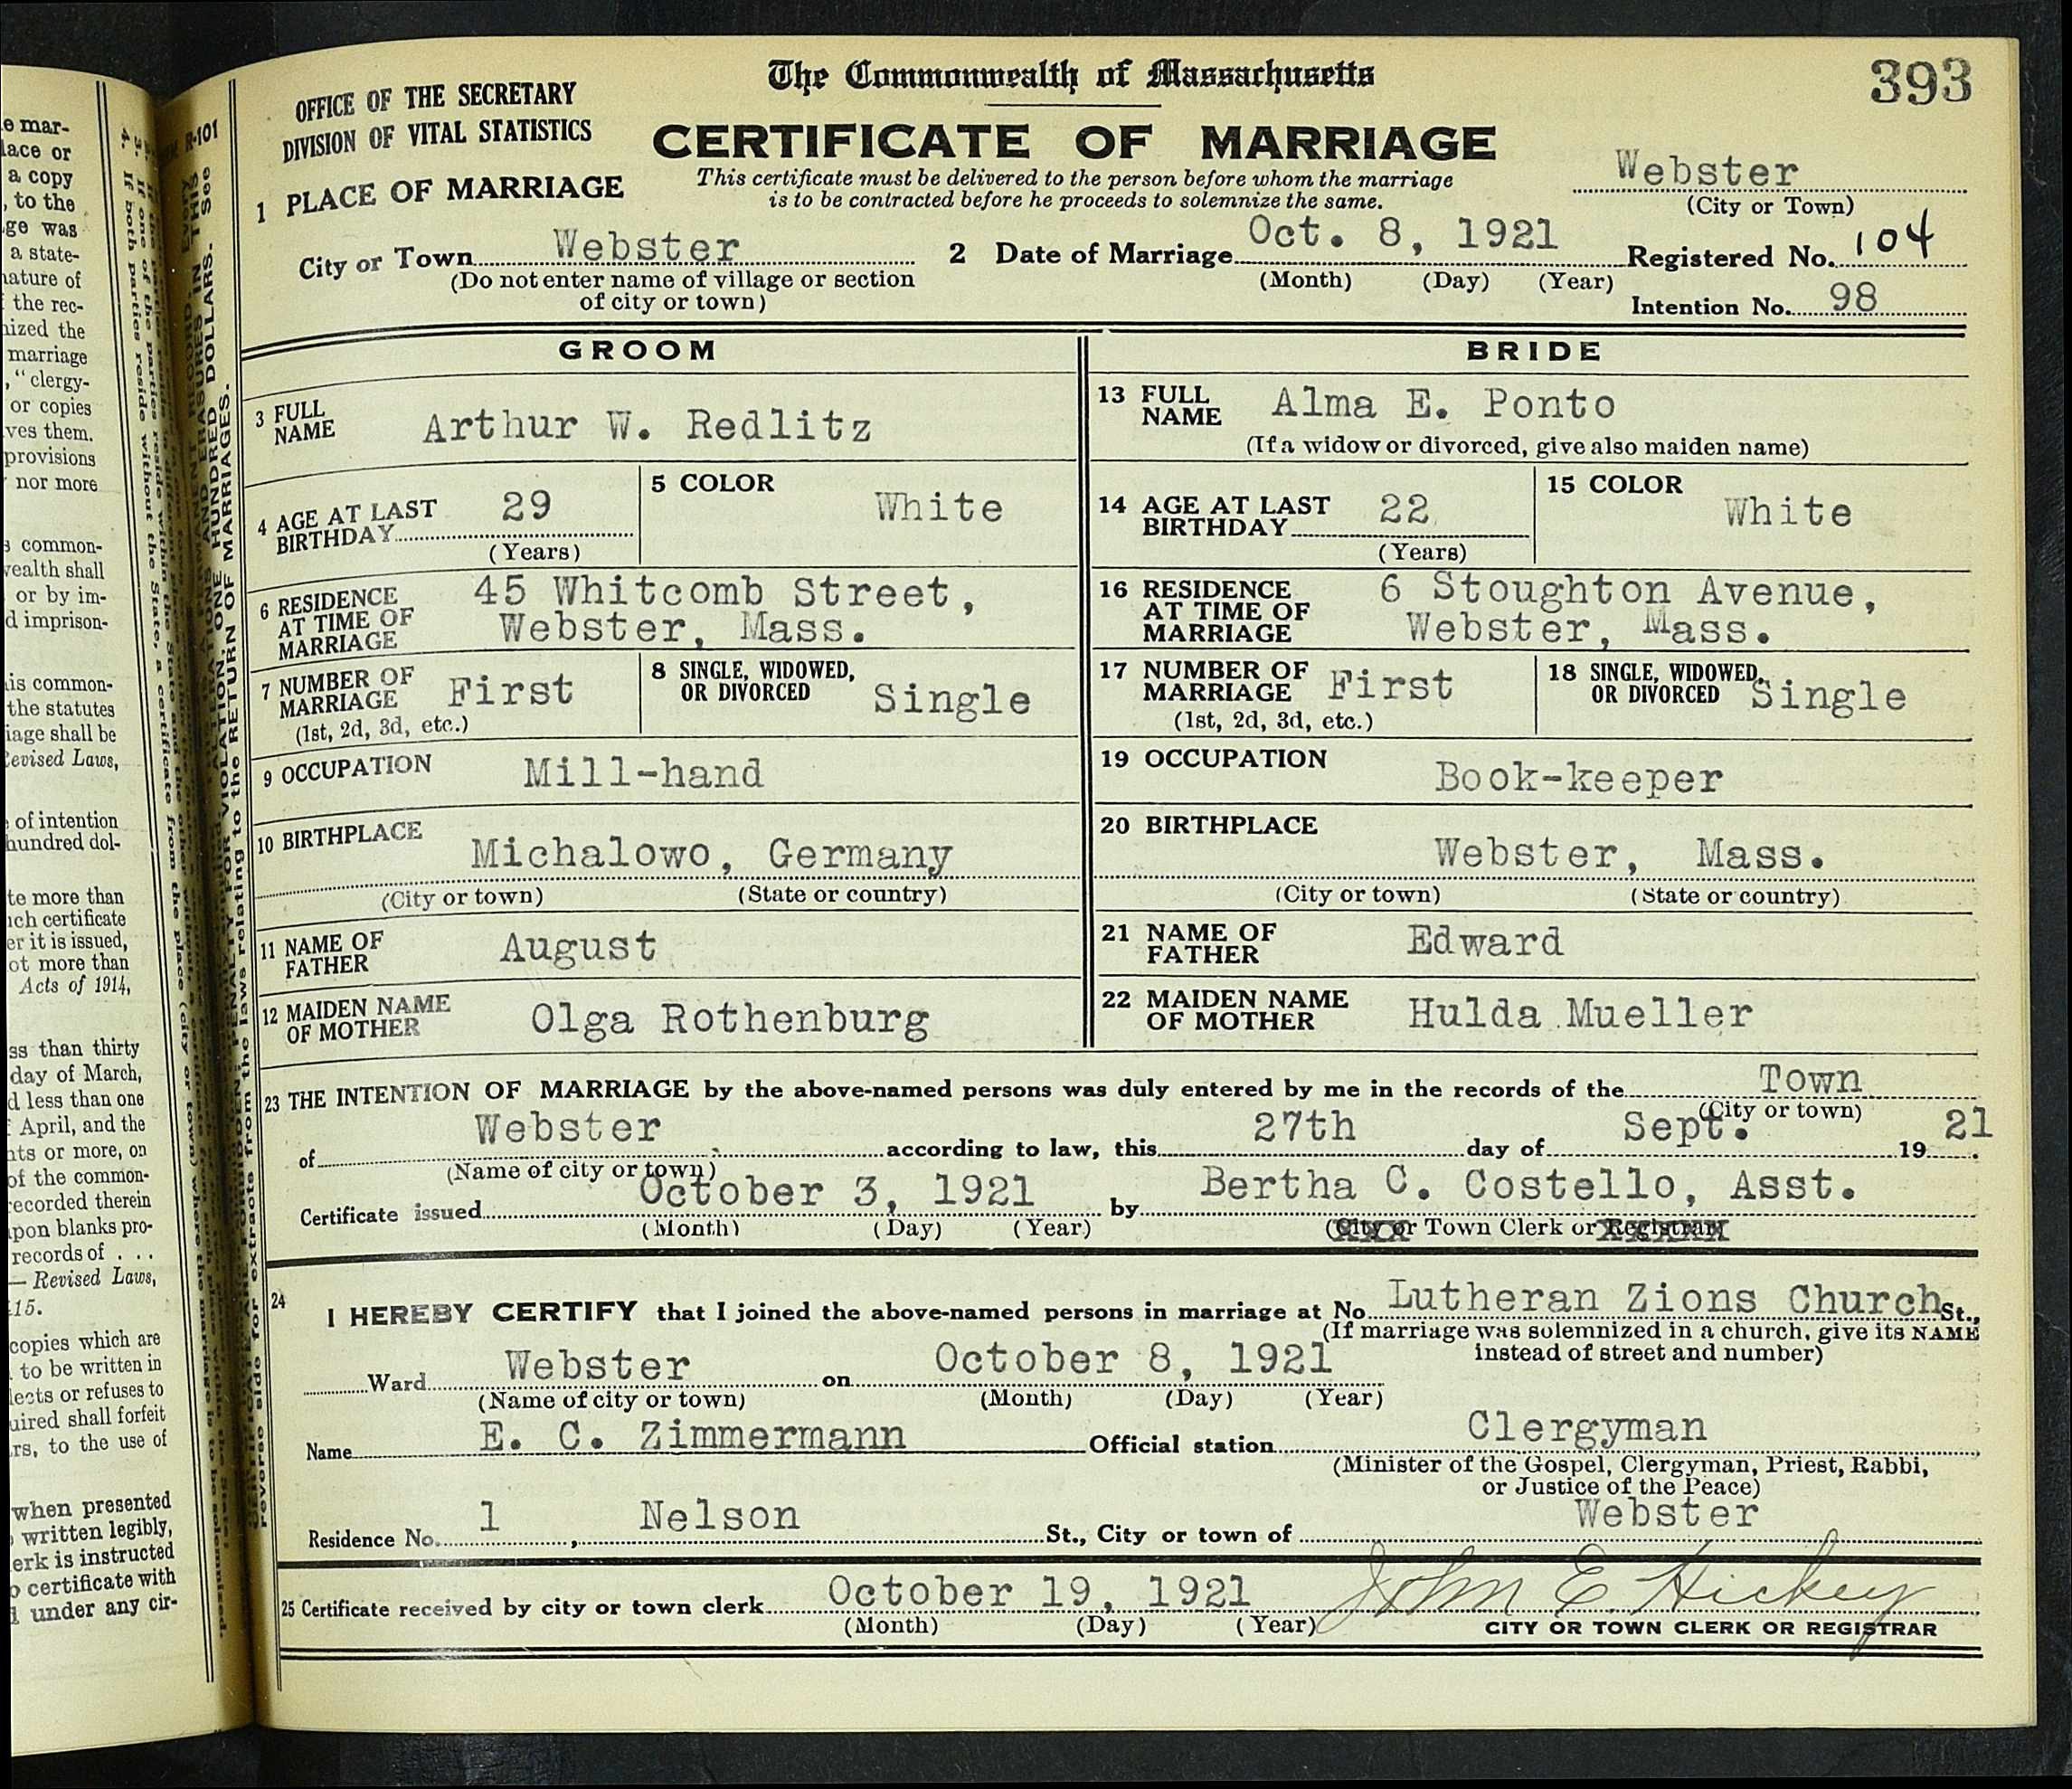 The Commonwealth of Massachusetts
393
OFFICE OF THE SECRETARY
DIVISION OF VITAL STATISTICS
CERTIFICATE OF MARRIAGE
This certificate must be delivered to the person before whom the marriage
is to be contracted before he proceeds to solemnize the same.
Webster
(City or Town)
1 PLACE OF MARRIAGE
City or Town Webster
(Do not enter name of village or section
of city or town)
2 Date of Marriage Oct. 8, 1921
(Month) (Day) (Year)
Registered No. 104
Intention No. 98
GROOM
3 FULL
NAME Arthur W. Redlitz
4 AGE AT LAST
BIRTHDAY 29
(Years)
5 COLOR
White
6 RESIDENCE
AT TIME OF
MARRIAGE
45 Whitcomb Street,
Webster, Mass.
7 NUMBER OF
MARRIAGE First
(1st, 2d, 3d, etc.)
8 SINGLE, WIDOWED,
OR DIVORCED Single
9 OCCUPATION Mill-hand
10 BIRTHPLACE
Michalowo, Germany
(City or town) (State or country)
11 NAME OF
FATHER August
12 MAIDEN NAME
OF MOTHER Olga Rothenburg
BRIDE
13 FULL
NAME Alma E. Ponto
(If a widow or divorced, give also maiden name)
14 AGE AT LAST
BIRTHDAY 22
(Years)
15 COLOR
White
16 RESIDENCE
AT TIME OF
MARRIAGE
6 Stoughton Avenue,
Webster, Mass.
17 NUMBER OF
MARRIAGE First
(1st, 2d, 3d, etc.)
18 SINGLE, WIDOWED,
OR DIVORCED Single
19 OCCUPATION
Book-keeper
20 BIRTHPLACE
Webster, Mass.
(City or town) (State or country)
21 NAME OF
FATHER Edward
22 MAIDEN NAME
OF MOTHER Hulda Mueller
23 THE INTENTION OF MARRIAGE by the above-named persons was duly entered by me in the records of the Town
(City or town)
of Webster according to law, this 27th day of Sept. 19 21.
(Name of city or town)
Certificate issued October 3, 1921 by Bertha C. Costello, Asst.
(Month) (Day) (Year) (City or Town Clerk or Registrar)
24
I HEREBY CERTIFY that I joined the above-named persons in marriage at No. Lutheran Zions Church St.,
(If marriage was solemnized in a church, give its NAME
instead of street and number)
Ward Webster on October 8, 1921
(Name of city or town) (Month) (Day) (Year)
Name E. C. Zimmermann Official station Clergyman
(Minister of the Gospel, Clergyman, Priest, Rabbi,
or Justice of the Peace)
Residence No. 1, Nelson St., City or town of Webster
25 Certificate received by city or town clerk October 19, 1921 John E. Hickey
(Month) (Day) (Year) CITY OR TOWN CLERK OR REGISTRAR
R-101
e mar-
lace or
a copy
, to the
ge was
a state-
nature of
f the rec-
nized the
marriage
," clergy-
or copies
ves them.
provisions
nor more
s common-
wealth shall
or by im-
d imprison-
is common-
the statutes
iage shall be
Revised Laws,
of intention
hundred dol-
te more than
ich certificate
er it is issued,
ot more than
Acts of 1914,
ss than thirty
day of March,
d less than one
April, and the
nts or more, on
of the common-
recorded therein
upon blanks pro-
records of . . .
— Revised Laws,
15.
copies which are
to be written in
lects or refuses to
uired shall forfeit
rs, to the use of
when presented
written legibly,
erk is instructed
certificate with
d under any cir-
4. If both parties reside without the State, a certificate from the place (city or town) where the marriage is to be solemnized.
reverse side for extracts from the laws relating to the RETURN OF MARRIAGES.